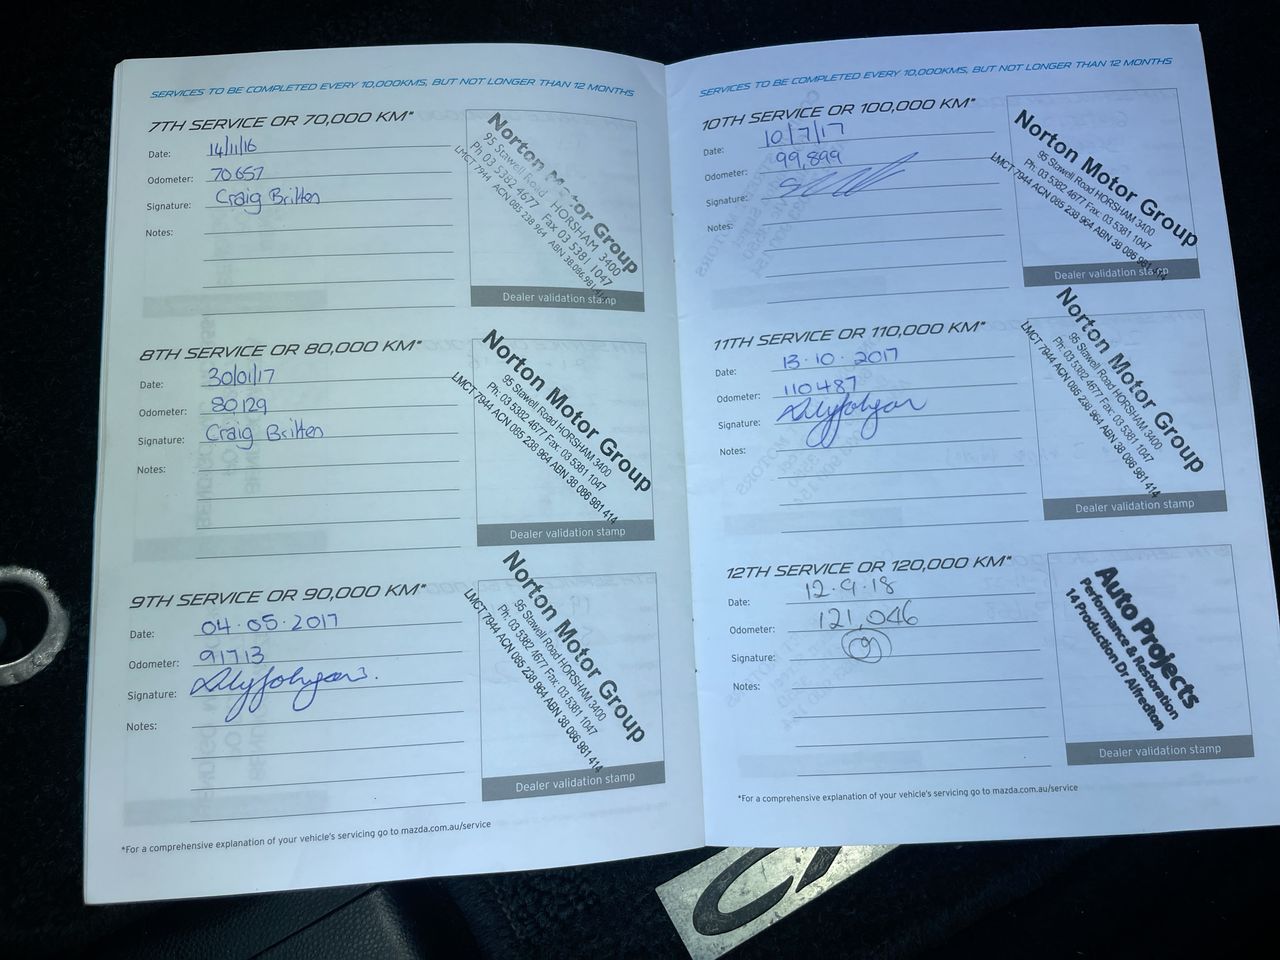 SERVICES TO BE COMPLETED EVERY 10,000KMS, BUT NOT LONGER THAN 12 MONTHS
7TH SERVICE OR 70,000 KM*
Date: 14/11/16
Odometer: 70657
Signature: Craig Britten
Notes:
Norton Motor Group
95 Stawell Road HORSHAM 3400
Ph 03 5382 4677 Fax 03 5381 1047
LMCT 7944 ACN 085 238 964 ABN 38 086 981 414
Dealer validation stamp
8TH SERVICE OR 80,000 KM*
Date: 30/01/17
Odometer: 80129
Signature: Craig Britten
Notes:
Norton Motor Group
95 Stawell Road HORSHAM 3400
Ph: 03 5382 4677 Fax: 03 5381 1047
LMCT 7944 ACN 085 238 964 ABN 38 086 981 414
Dealer validation stamp
9TH SERVICE OR 90,000 KM*
Date: 04.05.2017
Odometer: 91713
Signature:
Notes:
Norton Motor Group
95 Stawell Road HORSHAM 3400
Ph: 03 5382 4677 Fax: 03 5381 1047
LMCT 7944 ACN 085 238 964 ABN 38 086 981 414
Dealer validation stamp
*For a comprehensive explanation of your vehicle's servicing go to mazda.com.au/service
SERVICES TO BE COMPLETED EVERY 10,000KMS, BUT NOT LONGER THAN 12 MONTHS
10TH SERVICE OR 100,000 KM*
Date: 10/7/17
Odometer: 99,899
Signature:
Notes:
Norton Motor Group
95 Stawell Road HORSHAM 3400
Ph: 03 5382 4677 Fax: 03 5381 1047
LMCT 7944 ACN 085 238 964 ABN 38 086 981 414
Dealer validation stamp
11TH SERVICE OR 110,000 KM*
Date: 13.10.2017
Odometer: 110487
Signature:
Notes:
Norton Motor Group
95 Stawell Road HORSHAM 3400
Ph: 03 5382 4677 Fax: 03 5381 1047
LMCT 7944 ACN 085 238 964 ABN 38 086 981 414
Dealer validation stamp
12TH SERVICE OR 120,000 KM*
Date: 12.9.18
Odometer: 121,046
Signature:
Notes:
Auto Projects
Performance & Restoration
14 Production Dr Alfredton
Dealer validation stamp
*For a comprehensive explanation of your vehicle's servicing go to mazda.com.au/service